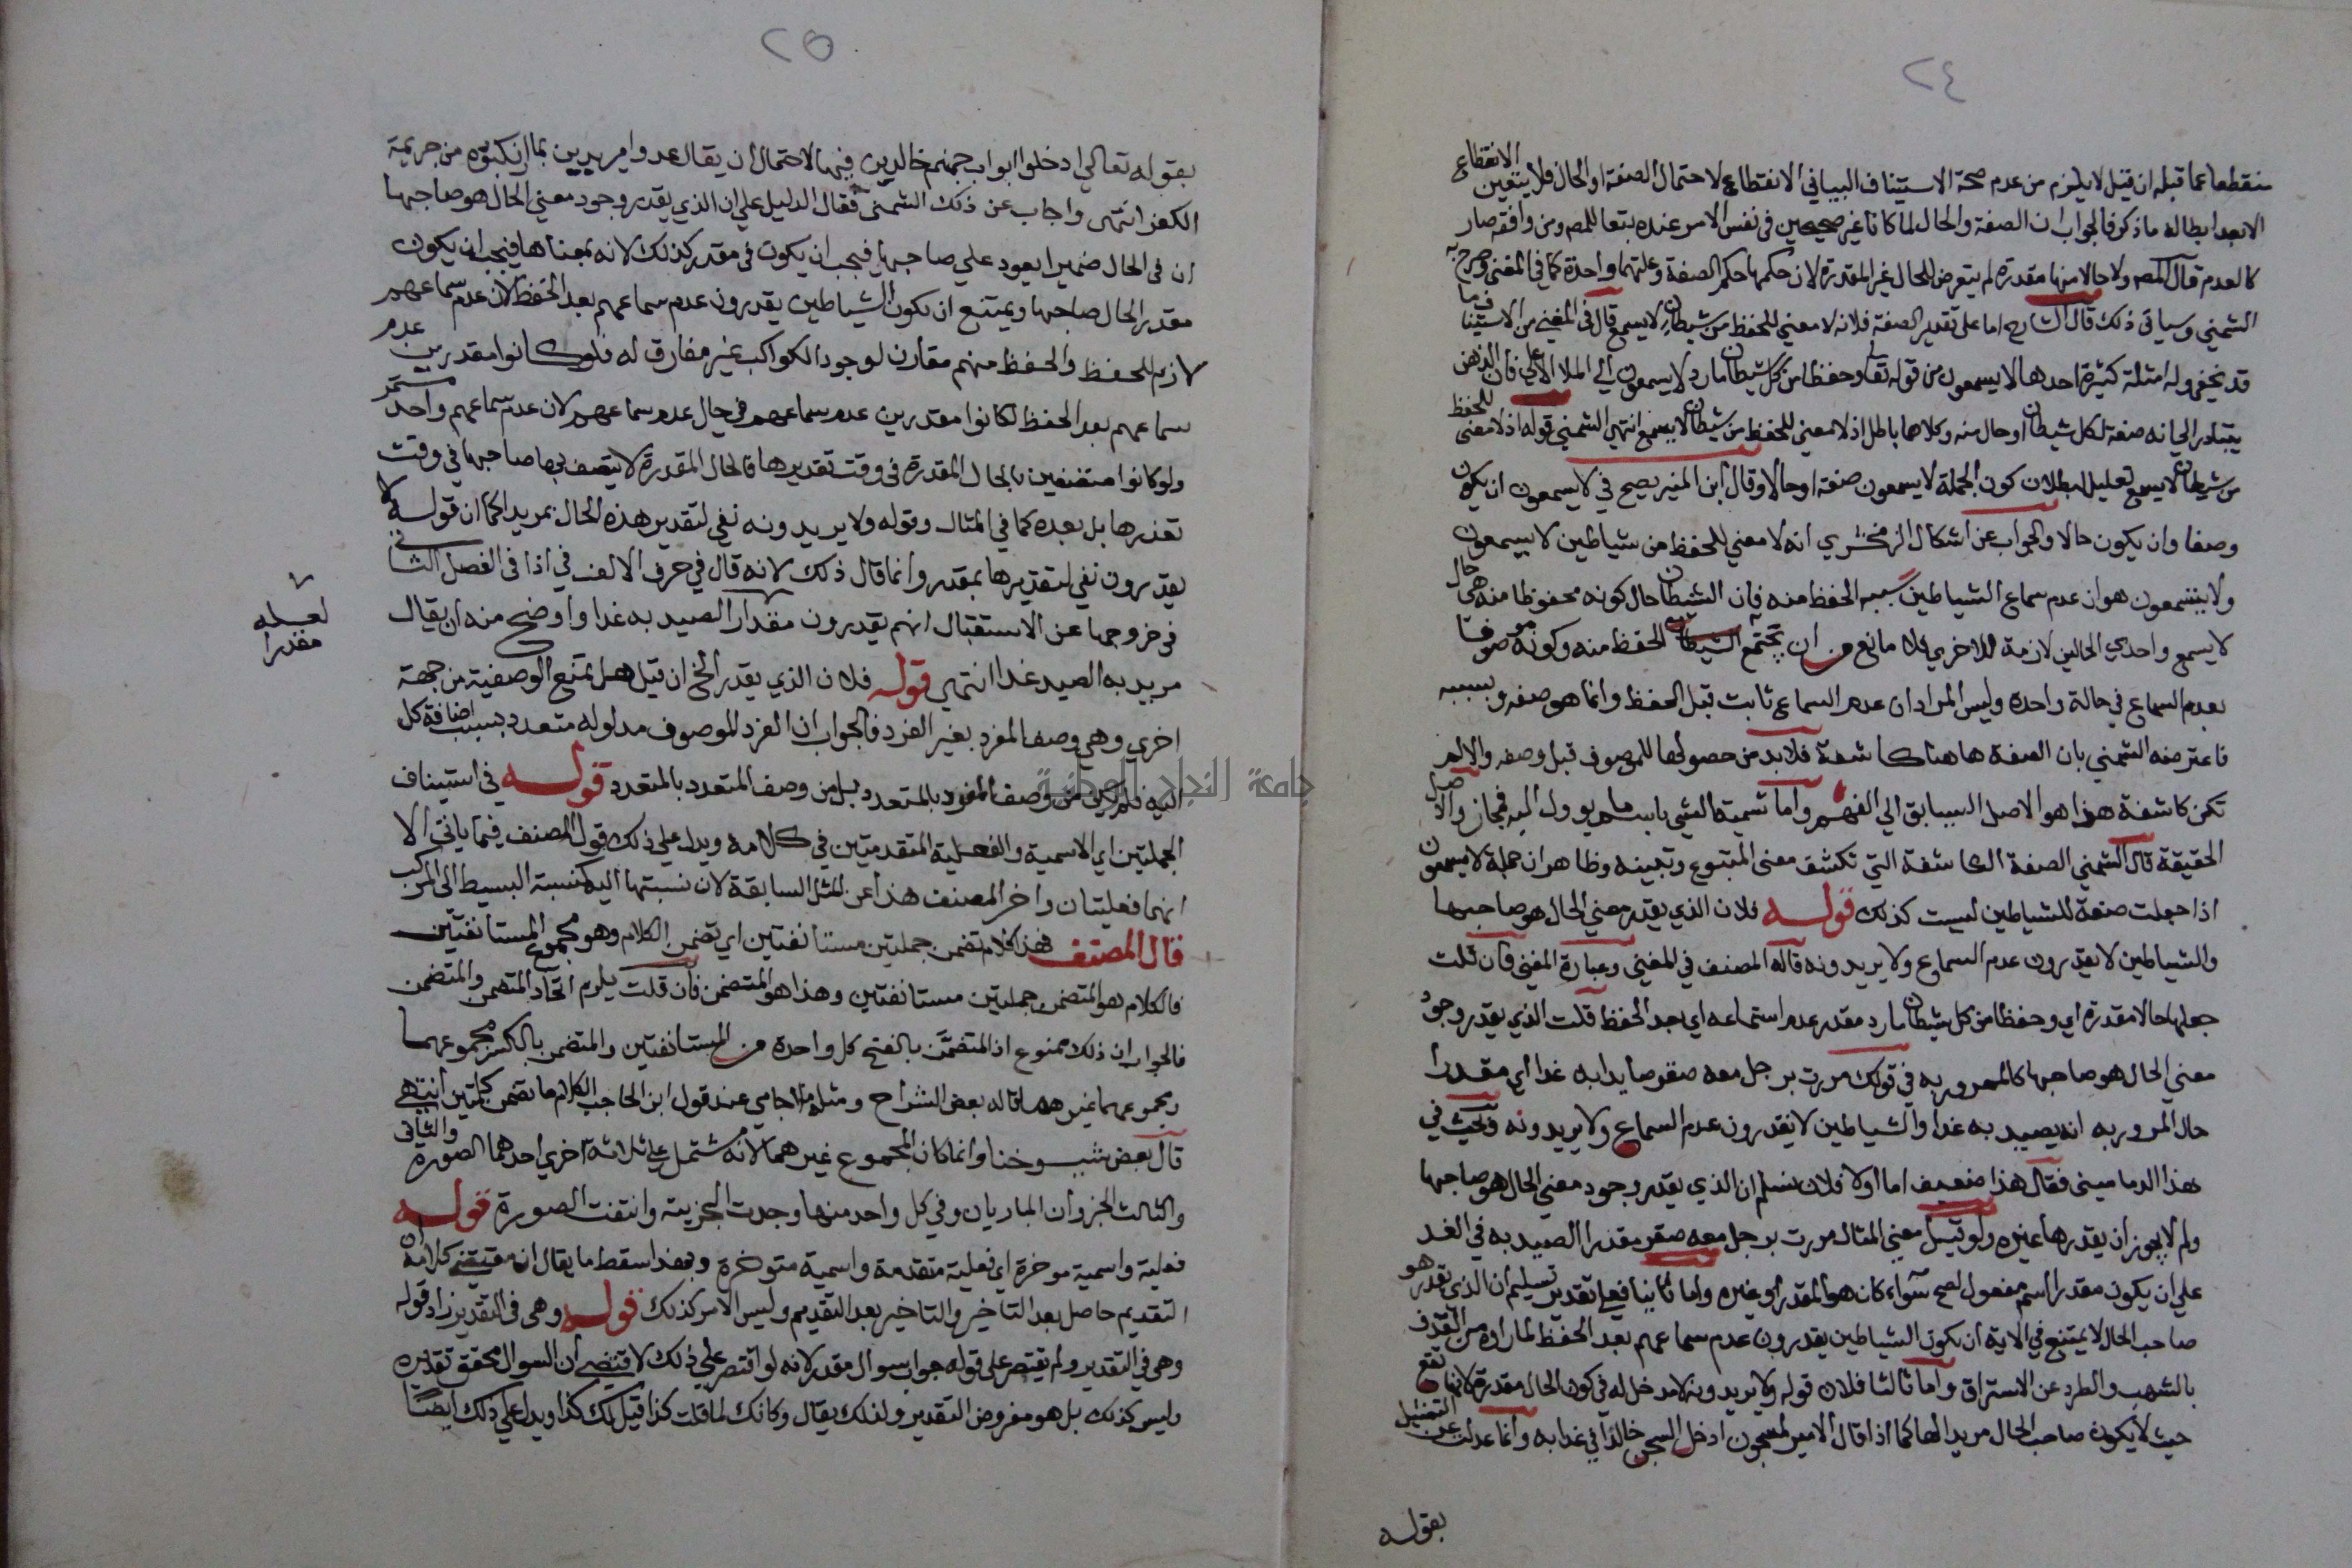 ٢٤
منقطعا عما قبله ان قيل لا يلزم من عدم صحة الاستيناف البياني الانقطاع لاحتمال الصفة او الحال فلا يتعين الانقطاع
الا بعد ابطاله ما ذكر فالجواب ان الصفة والحال لما كانا غير صحيحين في نفس الامر عنده تبعا للمصه ومن وافقه صار
كالعدم قال المصه ولا حالا منها مقدرة لم يتعرض للحال غير المقدرة لان حكمها حكم الصفة وعلتهما واحدة كما في المغني وصرح به
الشمني وسياتي ذلك قال الشارح اما على تقدير الصفة فلانه لا معني للحفظ من شيطان لا يسمع قال في المغني من الاستينا ف ما
قد يخفي وله امثلة كثيرة احدها لا يسمعون من قوله تعا وحفظا من كل شيطان مارد لا يسمعون الي الملا الاعلي فان الذهن
يتبادر الي انه صفة لكل شيطان او حال منه وكلاهما باطل اذ لا معني للحفظ من شيطان لا يسمع انتهي الشمني قوله اذ لا معنى للحفظ
من شيطان لا يسمع تعليل لبطلان كون الجملة لا يسمعون صفة او حالا وقال ابن المنير يصح في لا يسمعون ان يكون
وصفا وان يكون حالا والجواب عن اشكال الزمخشري انه لا معني للحفظ من شياطين لا يسمعون
ولا يتسمعون هو ان عدم سماع الشياطين سببه الحفظ منه فان الشيطان حال كونه محفوظا منه هي حال
لا يسمع واحدي الحالين لازمة للاخري فلا مانع من ان يجتمع الشيطان الحفظ منه وكونه موصوفا
بعدم السماع في حالة واحدة وليس المراد ان عدم السماع ثابت قبل الحفظ وانما هو صفه وبسببه
فاعترضه الشمني بان الصفة هاهنا كاشفة فلا بد من حصولها للموصوف قبل وصفه والا لم
تكن كاشفة هذا هو الاصل السابق الي الفهم واما تسمية الشي باسم ما يوول اليه فمجاز والاصل
الحقيقة قال الشمني الصفة الكاشفة التي تكشف معنى المتبوع وتبينه وظاهر ان جملة لا يسمعون
اذا جعلت صفة للشياطين ليست كذلك قوله فلان الذي يقدر معني الحال هو صاحبها
والشياطين لا يقدرون عدم السماع ولا يريدونه قاله المصنف في المغني وعبارة المغني فان قلت
جعلها حالا مقدرة اي وحفظا من كل شيطان مارد مقدر عدم استماعه اي بعد الحفظ قلت الذي يقدر وجود
معني الحال هو صاحبها كالممرور به في قولك مررت برجل معه صقر صايدا به غدا اي مقدرا
حال المرور به انه يصيد به غدا والشياطين لا يقدرون عدم السماع ولا يريدونه وبحث في
هذا الدماميني فقال هذا ضعيف اما اولا فلان نسلم ان الذي يقدر وجود معني الحال هو صاحبها
ولم لا يجوز ان يقدرها غيره ولو قيل معني المثال مررت برجل معه صقر مقدرا الصيد به في الغد
علي ان يكون مقدرا اسم مفعول لصح سواء كان هو المقدر او غيره واما ثانيا فعلي تقدير تسليم ان الذي يقدر هو
صاحب الحال لا يمتنع في الاية ان يكون الشياطين يقدرون عدم سماعهم بعد الحفظ لما راوه من القذف
بالشهب والطرد عن الاستراق واما ثالثا فلان قوله ولا يريدونه لا مدخل له في كون الحال مقدرة لانها تقع
حيث لا يكون صاحب الحال مريدا لها كما اذا قال الامير لمسجون ادخل السجن خالدا في عذابه وانما عدلت عن التمثيل
بقوله
٢٥
بقوله تعالي ادخلوا ابواب جهنم خالدين فيها لاحتمال ان يقال عدوا مريدين بما ارتكبوه من جريمة
الكفر انتهى واجاب عن ذلك الشمني فقال الدليل علي ان الذي يقدر وجود معني الحال هو صاحبها
ان في الحال ضميرا يعود علي صاحبها فيجب ان يكون في مقدر كذلك لانه بمعناها فيجب ان يكون
مقدر الحال صاحبها ويمتنع ان يكون الشياطين يقدرون عدم سماعهم بعد الحفظ لان عدم سماعهم
لازم للحفظ والحفظ منهم مقارن لوجود الكواكب غير مفارق له فلو كانوا مقدرين عدم
سماعهم بعد الحفظ لكانوا مقدرين عدم سماعهم في حال عدم سماعهم لان عدم سماعهم واحد مستمر
ولو كانوا متصفين بالحال المقدرة في وقت تقديرها فالحال المقدرة لا يتصف بها صاحبها في وقت
تقدرها بل بعده كما في المثال وقوله ولا يريدونه نفي لتقدير هذه الحال بمريدا كما ان قوله لا
يقدرون نفي لتقديرها بمقدر وانما قال ذلك لانه قال في حرف الالف في اذا في الفصل الثاني
في خروجها عن الاستقبال انهم يقدرون مقدار الصيد به غدا واوضح منه ان يقال
لعله
مقدرا
مريد به الصيد غدا انتهي قوله فلان الذي يقدر الخ ان قيل هل تمتنع الوصفية من جهة
اخري وهي وصف المفرد بغير المفرد فالجواب ان المفرد الموصوف مدلوله متعدد بسبب اضافة كل
اليه فلم يكن من وصف المفرد بالمتعدد بل من وصف المتعدد بالمتعدد قوله في استيناف
الجملتين اي الاسمية والفعلية المتقدمتين في كلامه ويدل علي ذلك قول المصنف فيما ياتي الا
انهما فعليتان واخر المصنف هذا عن المثل السابقة لان نسبتها اليه كنسبة البسيط الى المركب
قال المصنف فهذا كلام تضمن جملتين مستانفتين اي تضمن الكلام وهو مجموع المستانفتين
فالكلام هو المتضمن جملتين مستانفتين وهذا هو المتضمن فان قلت يلزم اتحاد المتضمن والمتضمن
فالجواب ان ذلك ممنوع اذ المتضمَّن بالفتح كل واحدة من المستانفتين والمتضمن بالكسر مجموعهما
ومجموعهما غيرهما قاله بعض الشراح ومثله للجامي عند قول ابن الحاجب الكلام ما تضمن كلمتين انتهي
قال بعض شيوخنا وانما كان المجموع غيرهما لانه مشتمل علي ثلاثة اخري احدهما الصورة والثاني
والثالث الجزوان الماديان وفي كل واحد منها وجدت الجزيته وانتفت الصورة قوله
فعلية واسمية موخرة اي فعلية متقدمة واسمية متوخرة وبهذا سقط ما يقال ان مقتضي كلامه ان
التقديم حاصل بعد التاخير والتاخير بعد التقديم وليس الامر كذلك قوله وهي في التقدير زاد قوله
وهي في التقدير ولم يقتصر على قوله جواب سوال مقدر لانه لو اقتصر علي ذلك لاقتضي ان السوال محقق تقديره
وليس كذلك بل هو مفروض التقدير ولذلك يقال وكانك لما قلت كذا قيل لك كذا ويدل علي ذلك ايضا
جامعة النجاح الوطنية